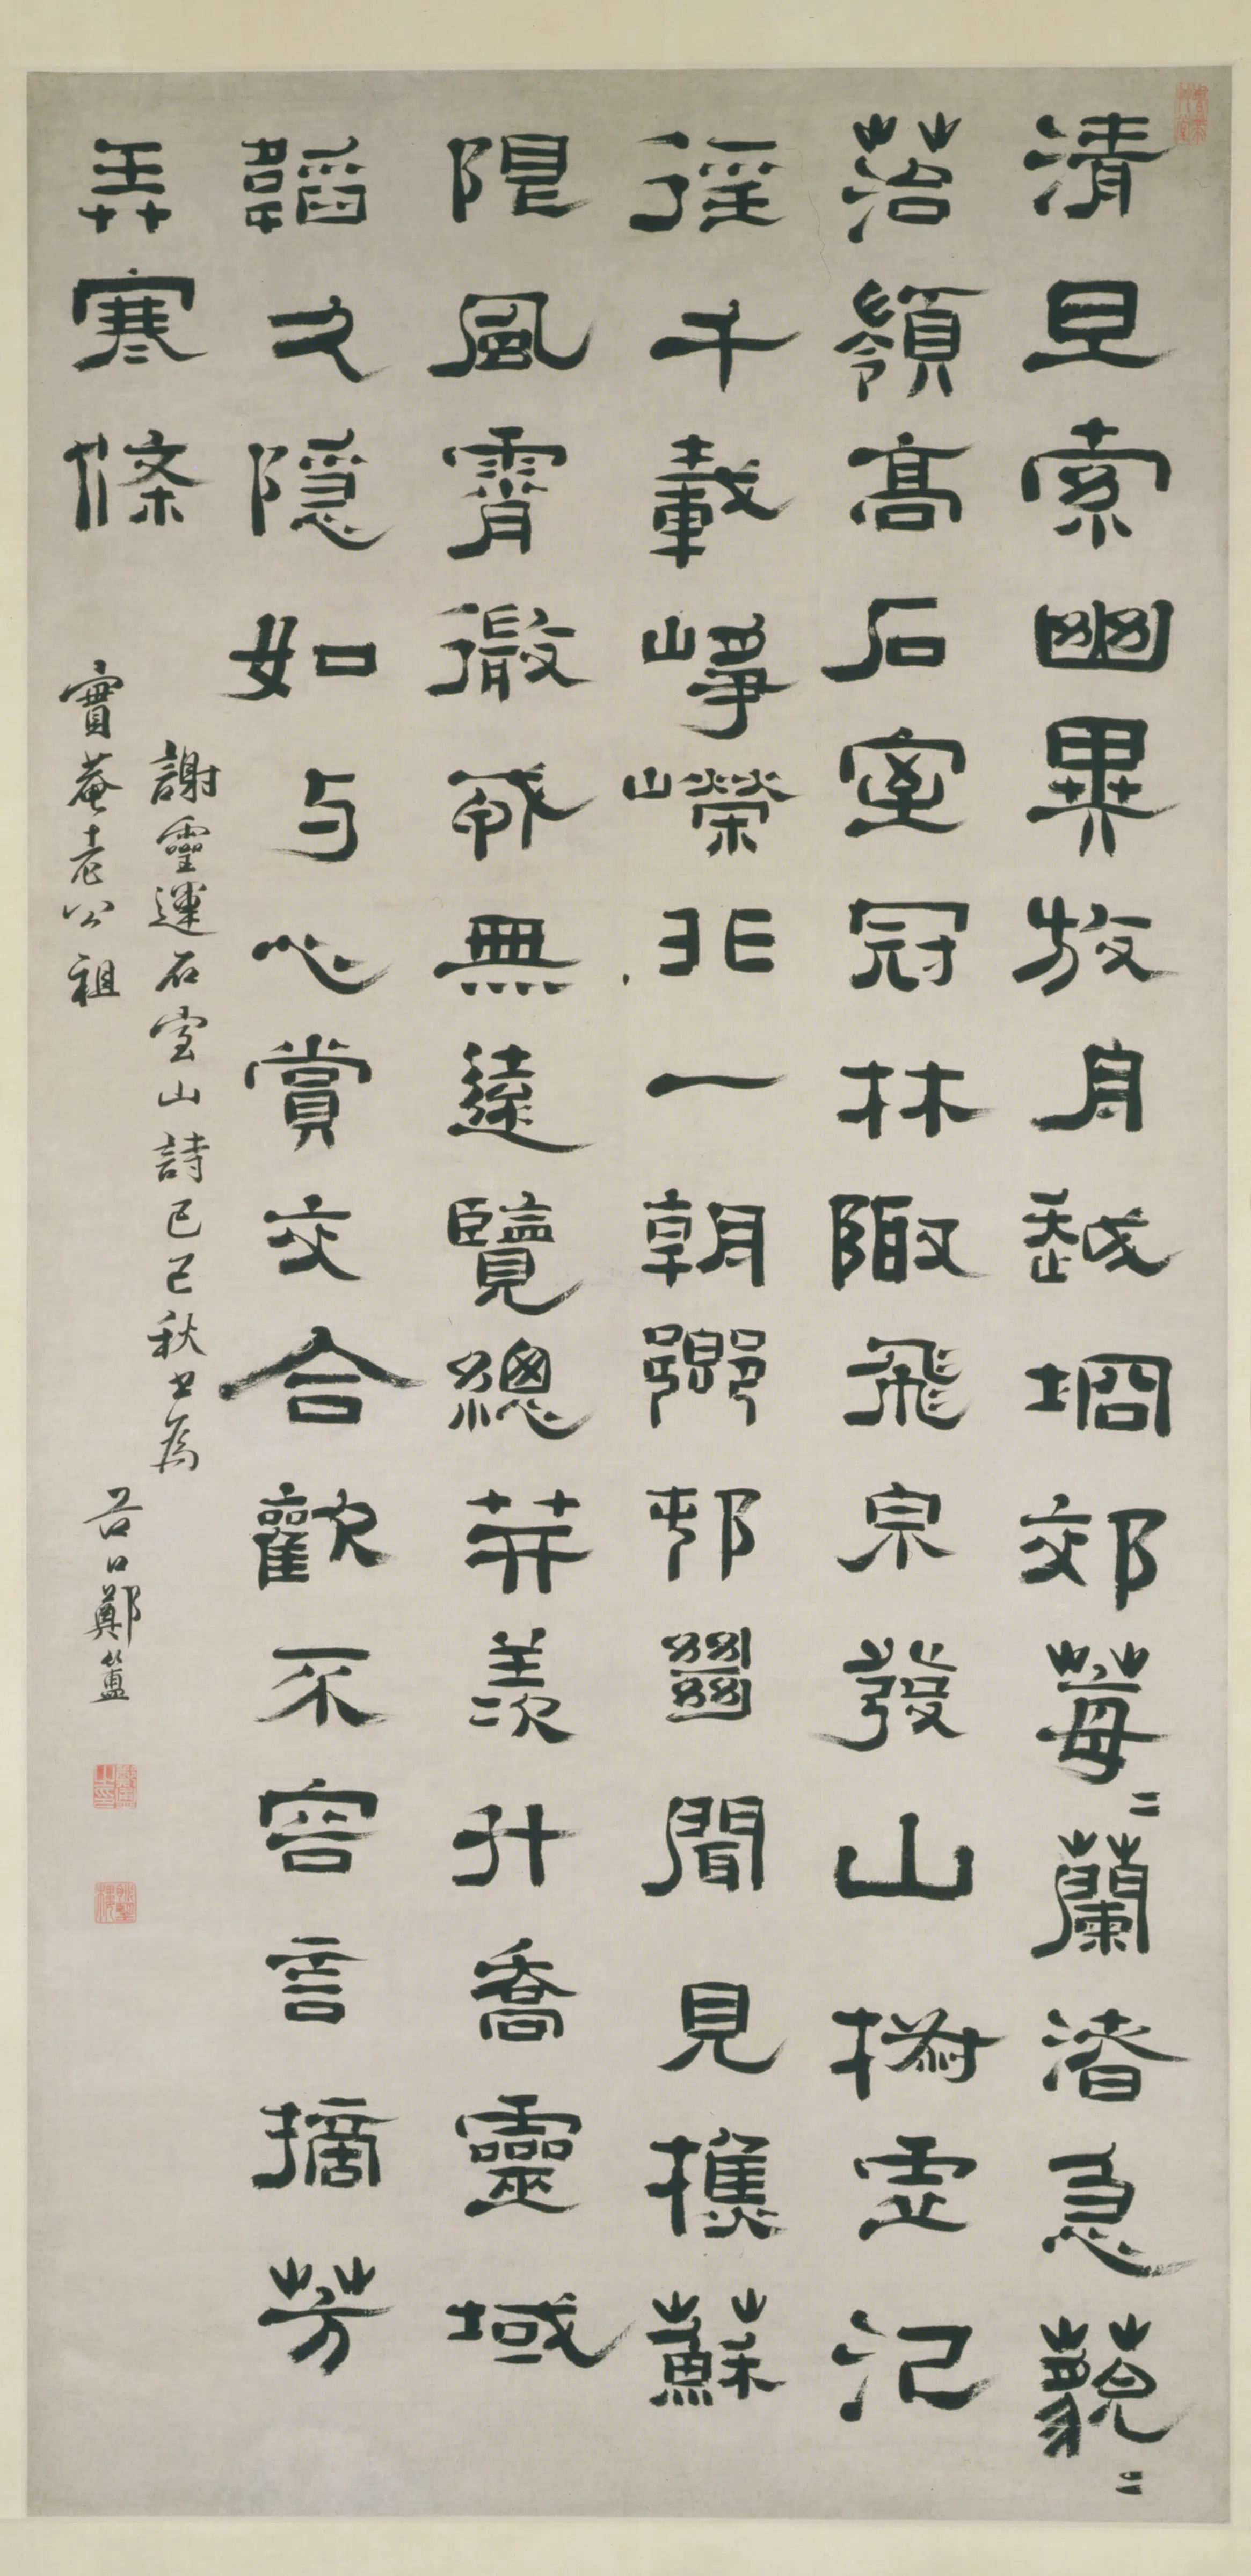 清旦索幽異放舟越坰郊莓〻蘭渚急藐〻
苔嶺高石室冠林陬飛泉發山椒虛汎
徑千載崢嶸非一朝鄉邨𢇍聞見樵蘇
限風霄微戎無遠覽總笄羨升喬靈域
韜久隱如与心賞交合歡不容言摘芳
弄寒條
謝靈運石室山詩己巳秋書為
實菴老公祖
谷口鄭簠